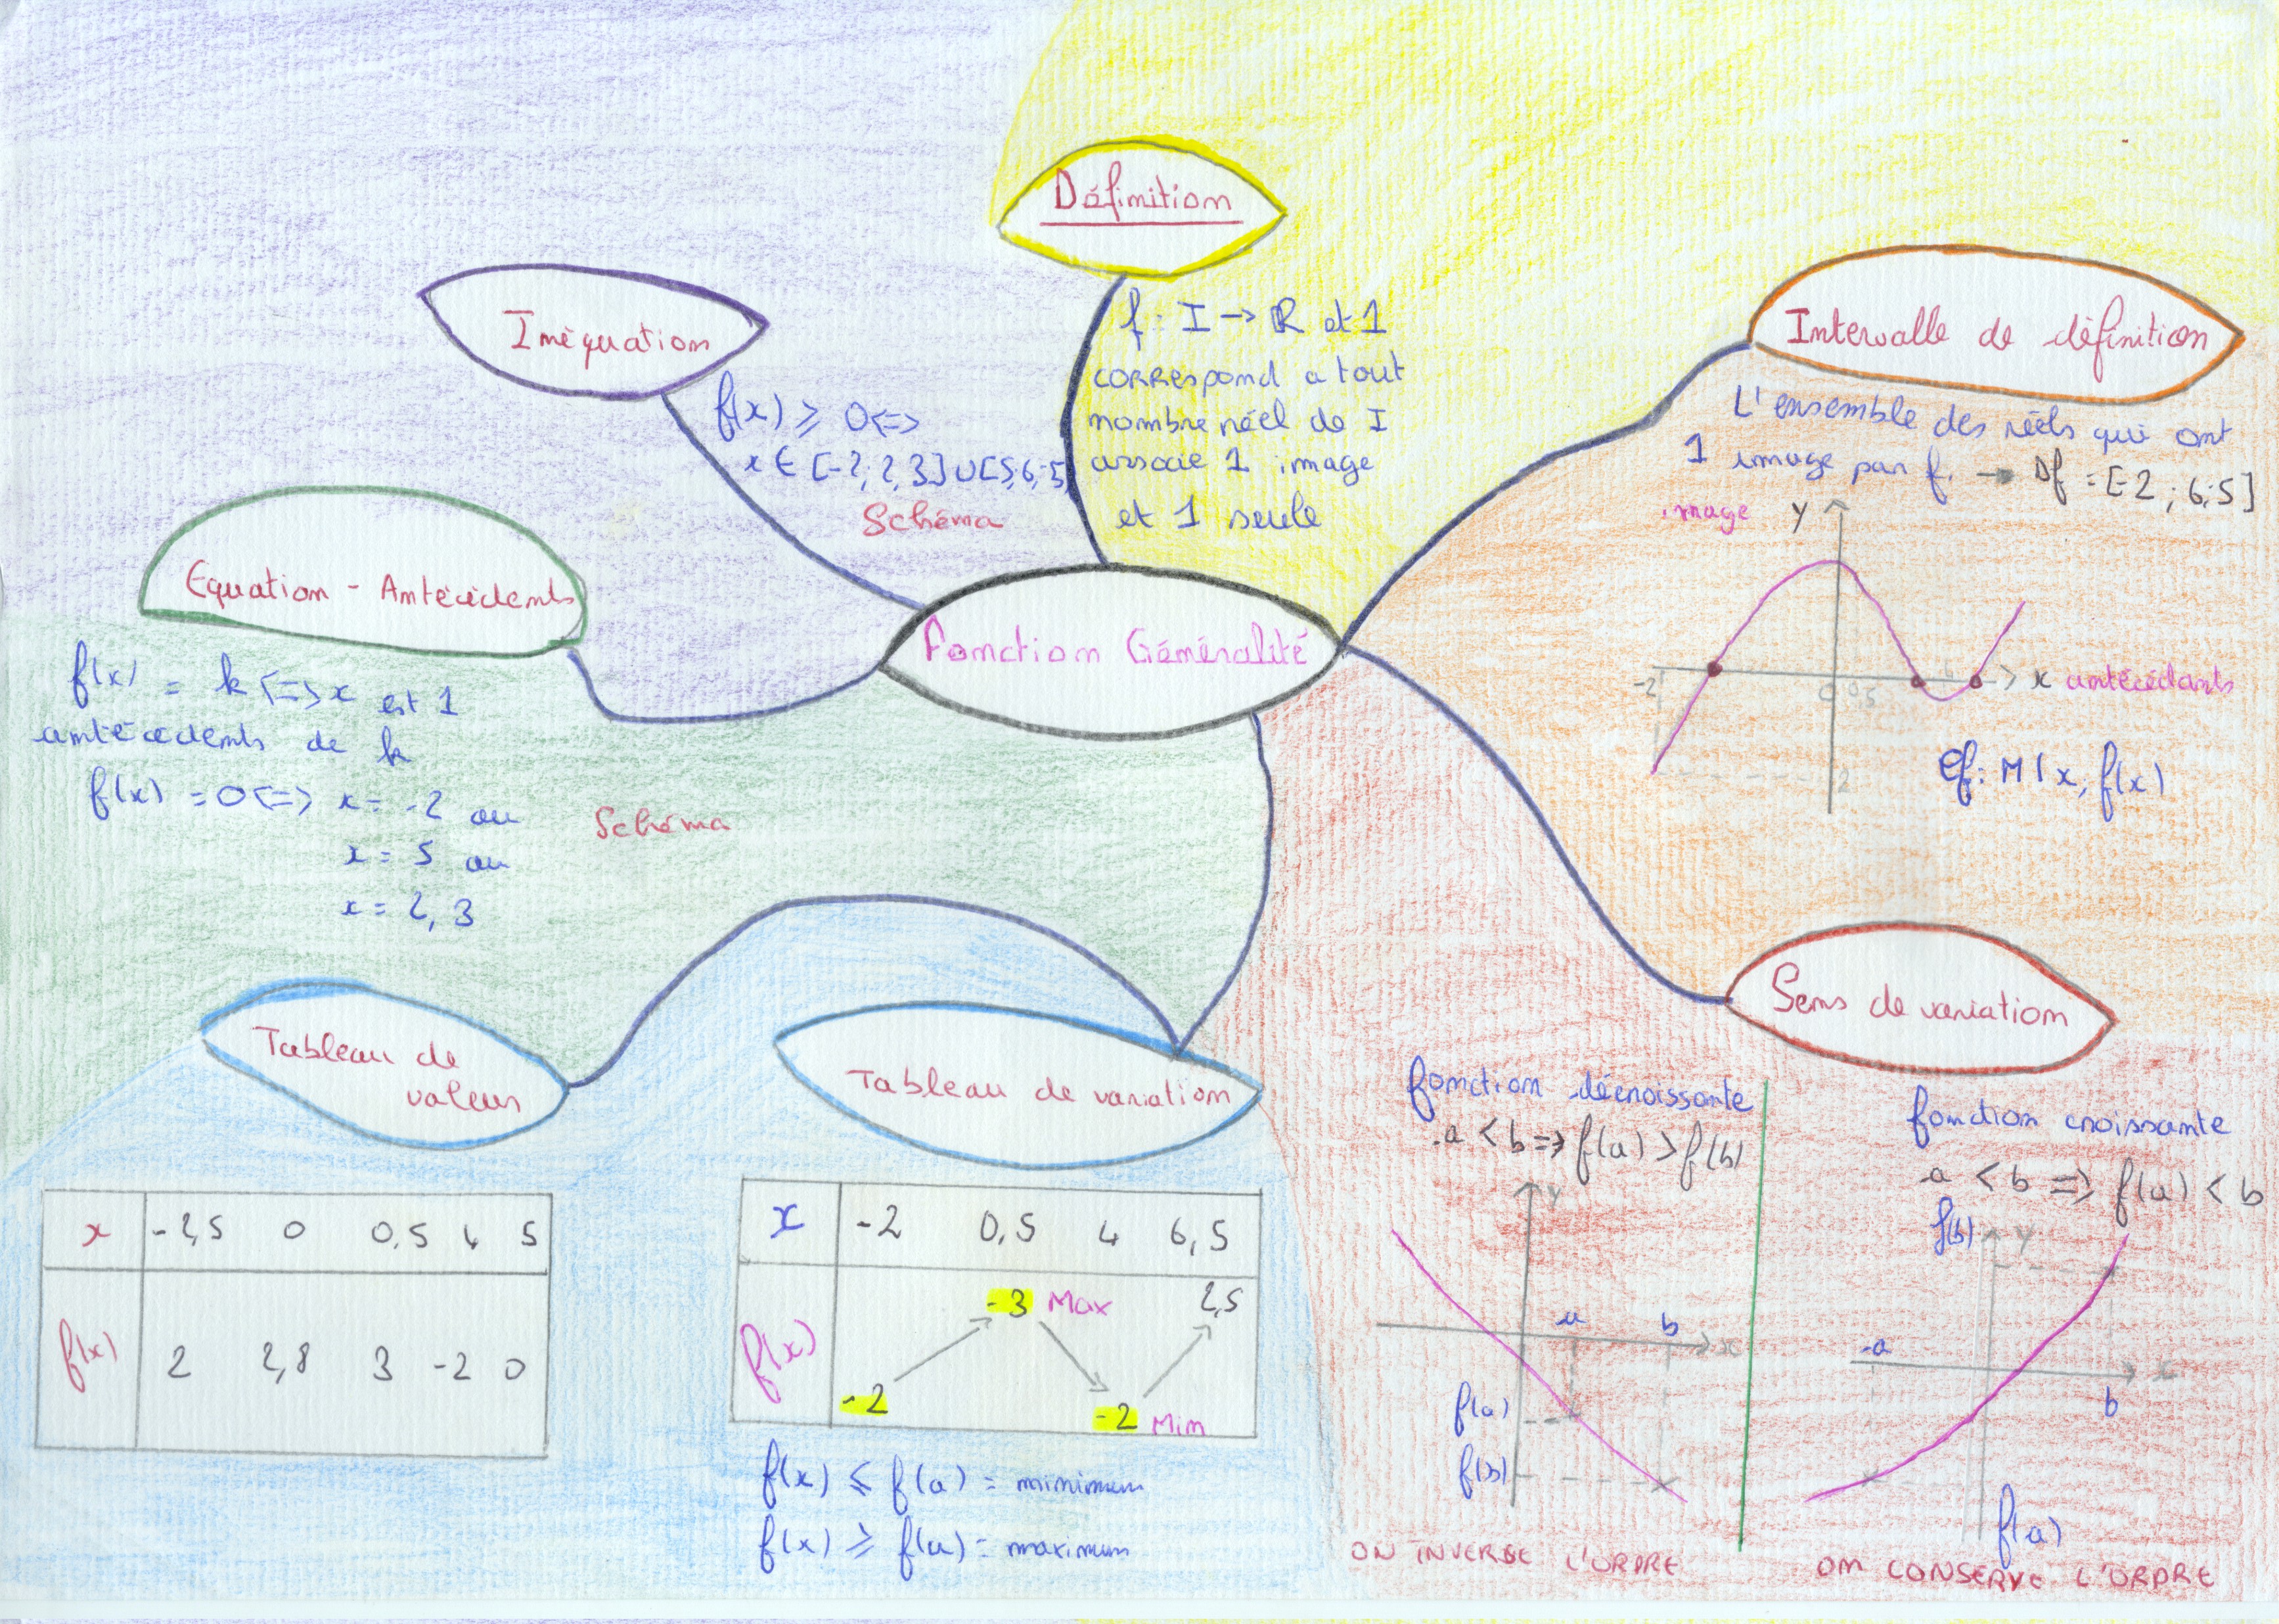 Définition
f : I → ℝ et 1
correspond a tout
nombre réel de I
associe 1 image
et 1 seule
Inéquation
f(x) ⩾ 0 <=>
x ∈ [-2; 2,3] U [5; 6,5]
Schéma
Intervalle de définition
L'ensemble des réels qui ont
1 image par f. → Df = [-2 ; 6,5]
image y
-2 0 0,5 4 x antécédants
2
Cf : M(x, f(x)
Equation - Antécédents
f(x) = k <=> x est 1
antécédents de k
f(x) = 0 <=> x = -2 ou
x = 5 ou
x = 2,3
Schéma
Fonction Généralité
Tableau de
valeurs
x -2,5 0 0,5 4 5
f(x) 2 2,8 3 -2 0
Tableau de variation
x -2 0,5 4 6,5
-3 Max 2,5
f(x)
-2 -2 Min
f(x) ⩽ f(a) = minimum
f(x) ⩾ f(a) = maximum
Sens de variation
fonction décroissante
a < b => f(a) > f(b)
y
a b x
f(a)
f(b)
ON INVERSE L'ORDRE
fonction croissante
a < b => f(a) < b
f(b) y
-a x
b
f(a)
ON CONSERVE L'ORDRE